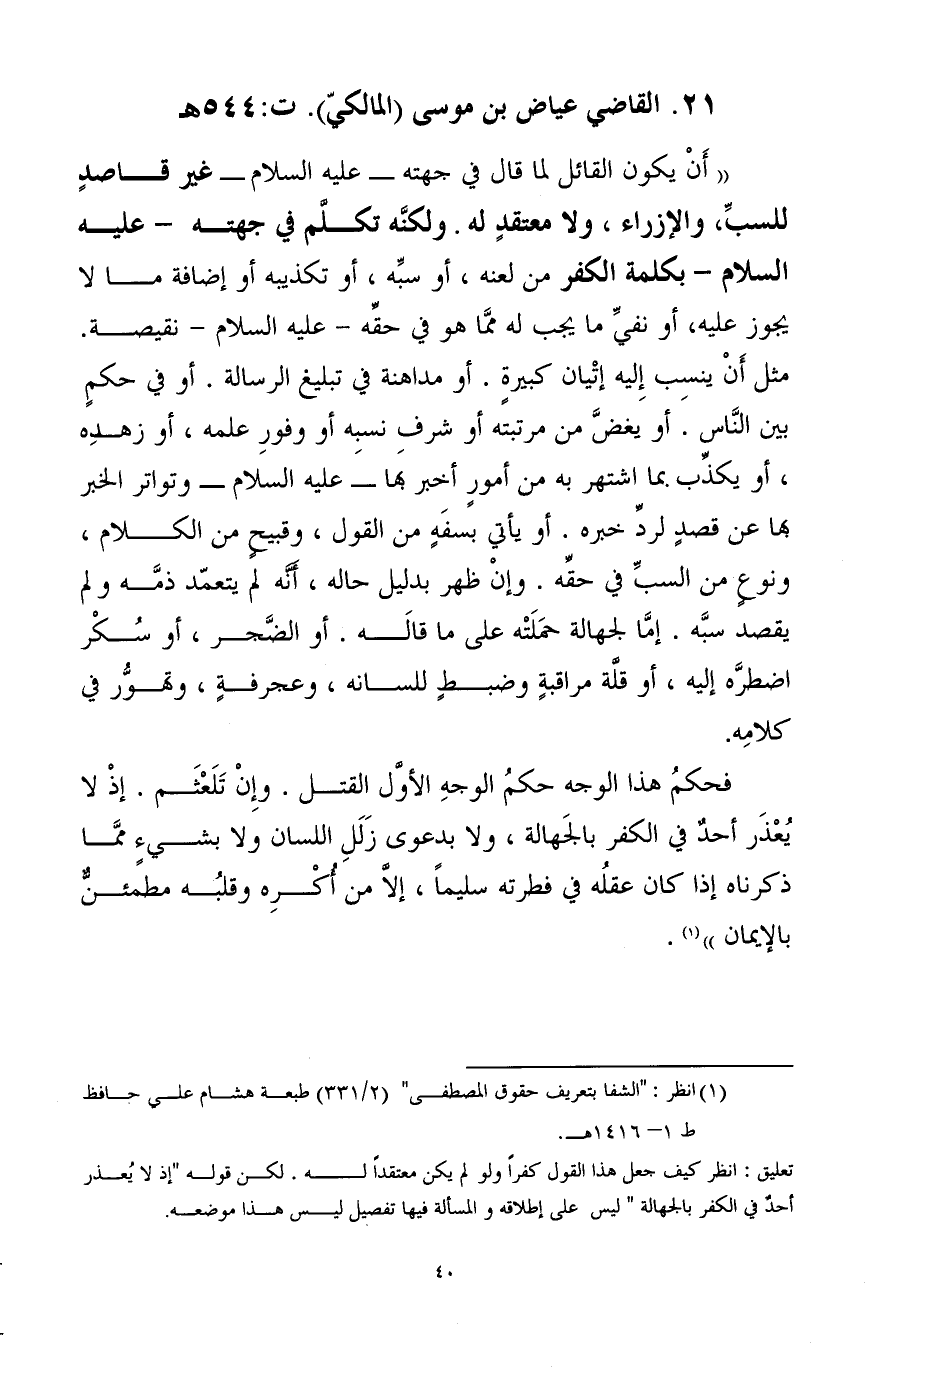 ٢١. القاضي عياض بن موسى (المالكيّ). ت:٥٤٤هـ
(( أَنْ يكون القائل لما قال في جهته ــ عليه السلام ــ غير قـــاصدٍ
للسبِّ، والإزراء ، ولا معتقدٍ له . ولكنَّه تكـــلَّم في جهتـــه - عليـــه
السلام - بكلمة الكفر من لعنه ، أو سبِّه ، أو تكذيبه أو إضافة مـــا لا
يجوز عليه، أو نفيِّ ما يجب له ممَّا هو في حقِّه - عليه السلام - نقيصـــة.
مثل أَنْ ينسِب إليه إتْيان كبيرةٍ . أو مداهنة في تبليغ الرسالة . أو في حكمٍ
بين النَّاس . أو يغضَّ من مرتبته أو شرفِ نسبِه أو وفورِ علمه ، أو زهـــدِه
، أو يكذِّب بما اشتهر به من أمورٍ أخبر بها ــ عليه السلام ــ وتواتر الخبر
بها عن قصدٍ لردِّ خبره . أو يأتي بسفَهٍ من القول ، وقبيحٍ من الكـــلام ،
ونوعٍ من السبِّ في حقِّه . وإنْ ظهر بدليل حاله ، أَنَّه لم يتعمّد ذمَّـــه ولم
يقصد سبَّه . إمَّا لجهالة حمَلَتْه على ما قالَـــه . أو الضَّجـــر ، أو سُـــكْر
اضطرَّه إليه ، أو قلَّة مراقبةٍ وضبـــطٍ للسانه ، وعجرفـــةٍ ، وتهـــوُّر في
كلامِه.
فحكمُ هذا الوجه حكمُ الوجهِ الأوَّل القتـــل . وإنْ تَلَعْثَـــم . إذْ لا
يُعْذَر أحدٌ في الكفر بالجَهالة ، ولا بدعوى زَلَلِ اللسان ولا بشـــيءٍ ممَّـــا
ذكرناه إذا كان عقلُه في فطرته سليماً ، إلاَّ من أُكْـــرِه وقلبُـــه مطمئـــنٌّ
بالإيمان ))(١) .
(١) انظر : "الشفا بتعريف حقوق المصطفـــى" (٣٣١/٢) طبعـــة هشـــام علـــي حـــافظ
ط ١- ١٤١٦هـــ.
تعليق : انظر كيف جعل هذا القول كفراً ولو لم يكن معتقداً لـــــه . لكـــن قولـــه "إذ لا يُعـــذر
أحدٌ في الكفر بالجهالة " ليس على إطلاقه و المسألة فيها تفصيل ليـــس هـــذا موضعـــه.
٤٠